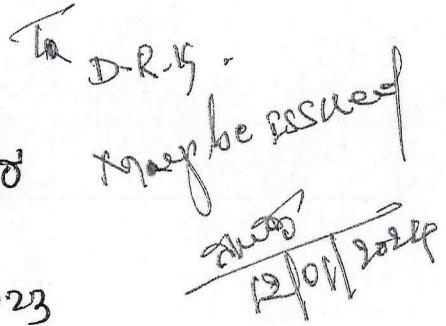 To
D.R.K.
May be issued
12/01/2024
23